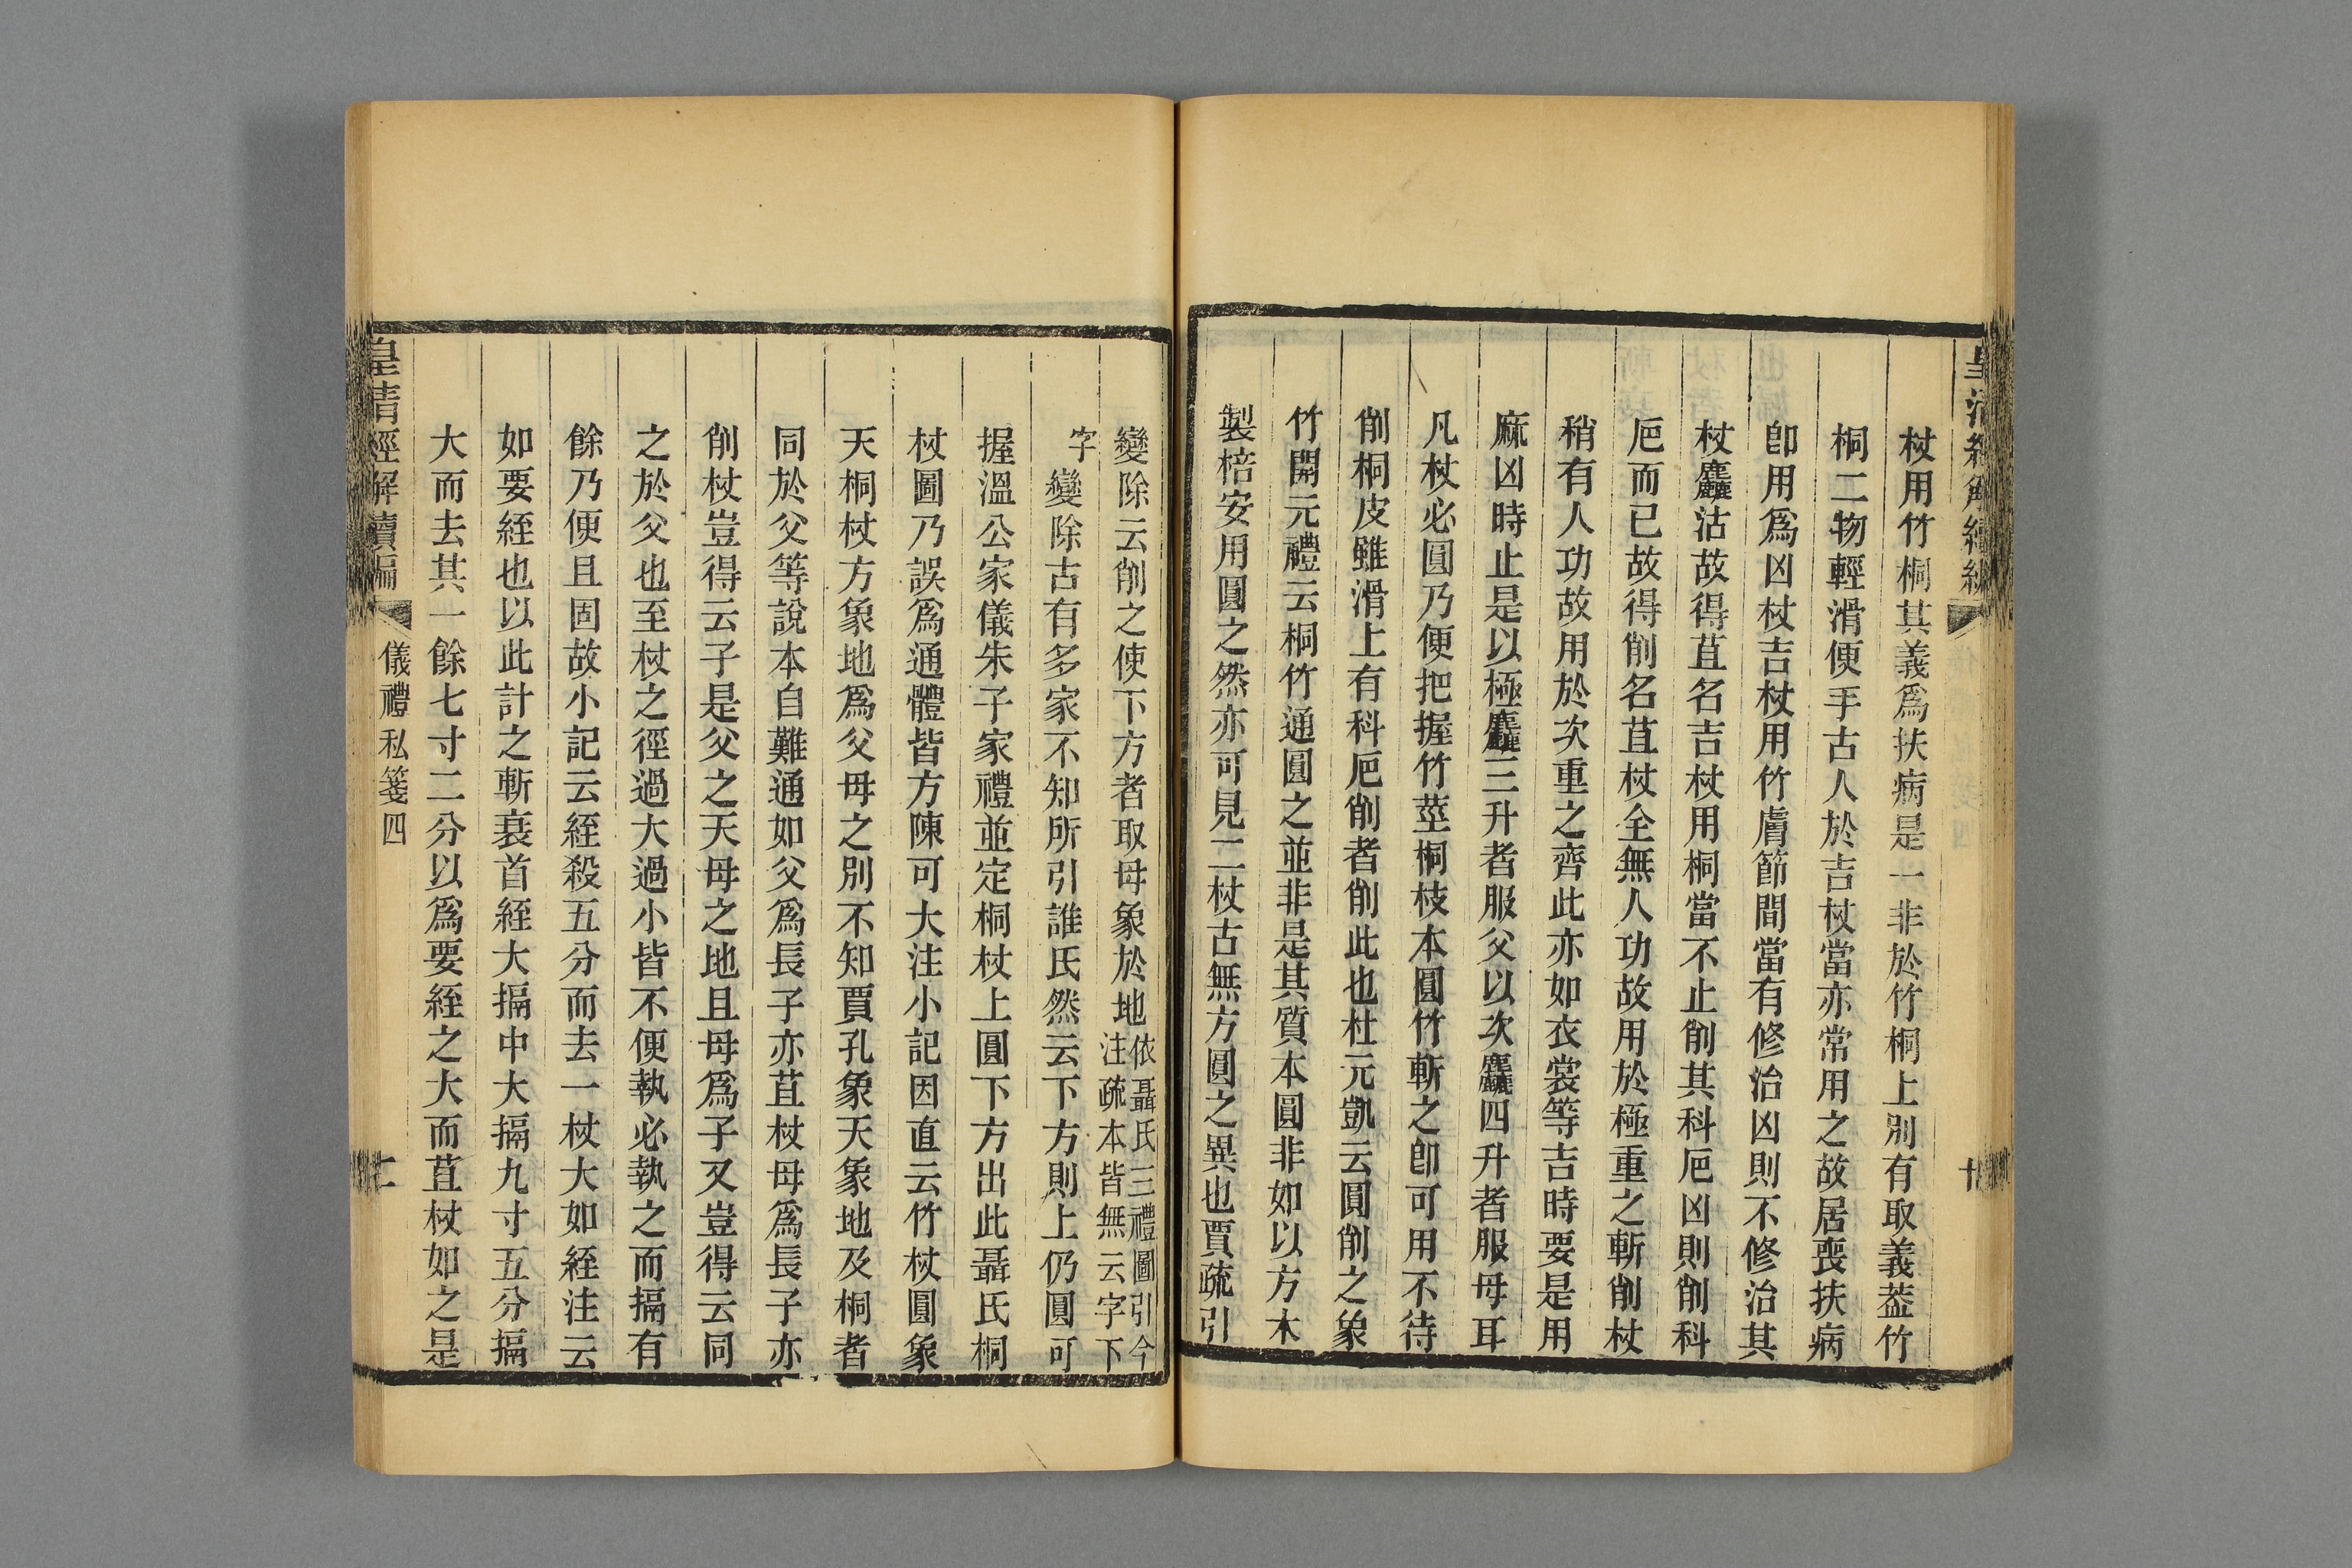 杖用竹桐其義爲扶病是一非於竹桐上別有取義葢竹
桐二物輕滑便手古人於吉杖當亦常用之故居喪扶病
卽用爲凶杖吉杖用竹膚節間當有修治凶則不修治其
杖麤沽故得苴名吉杖用桐當不止削其科厄凶則削科
厄而已故得削名苴杖全無人功故用於極重之斬削杖
稍有人功故用於次重之齊此亦如衣裳等吉時要是用
麻凶時止是以極麤三升者服父以次麤四升者服母耳
凡杖必圓乃便把握竹莖桐枝本圓竹斬之卽可用不待
削桐皮雖滑上有科厄削者削此也杜元凱云圓削之象
竹開元禮云桐竹通圓之並非是其質本圓非如以方木
製棓安用圓之然亦可見二杖古無方圓之異也賈疏引
變除云削之使下方者取母象於地
依聶氏三禮圖引今
注疏本皆無云字下
字
變除古有多家不知所引誰氏然云下方則上仍圓可
握溫公家儀朱子家禮並定桐杖上圓下方出此聶氏桐
杖圖乃誤爲通體皆方陳可大注小記因直云竹杖圓象
天桐杖方象地爲父母之別不知賈孔象天象地及桐者
同於父等說本自難通如父爲長子亦苴杖母爲長子亦
削杖豈得云子是父之天母之地且母爲子又豈得云同
之於父也至杖之徑過大過小皆不便執必執之而搹有
餘乃便且固故小記云絰殺五分而去一杖大如絰注云
如要絰也以此計之斬衰首絰大搹中大搹九寸五分搹
大而去其一餘七寸二分以爲要絰之大而苴杖如之是
皇清經解續編
儀禮私箋四